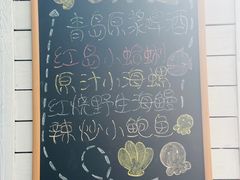 青岛原浆啤酒
红岛小蛤蜊
原汁小海螺
红烧野生海鳗
辣炒小鲍鱼